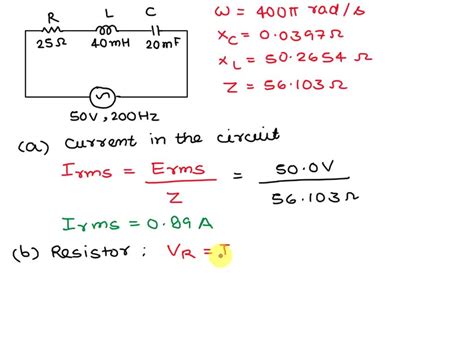 R L C
25Ω 40mH 20mF
50V, 200Hz
ω = 400π rad/s
X_C = 0.0397Ω
X_L = 50.2654 Ω
Z = 56.103Ω
(a) Current in the circuit
Irms = Erms / Z = 50.0V / 56.103Ω
Irms = 0.89 A
(b) Resistor : V_R = I